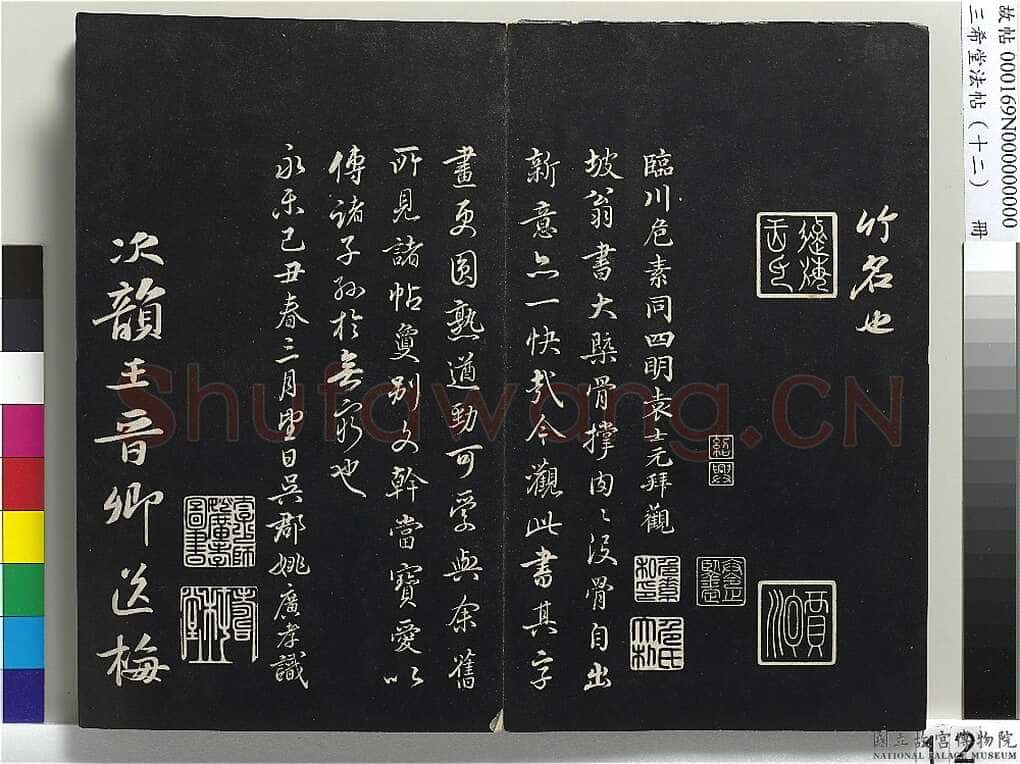 竹名也
臨川危素同四明袁士元拜觀
坡翁書大槩骨撑肉肉沒骨自出
新意亦一快哉今觀此書其字
畫更圆熟遒勁可愛與余舊
所見諸帖敻别文幹當寳愛以
傳諸子孫於無窮也
永樂己丑春三月望日吴郡姚廣孝識
次韻王晋卿送梅
紹興
賈
Shufawang.CN
故帖 000169N000000000
三希堂法帖(十二) 冊
國立故宮博物院
NATIONAL PALACE MUSEUM
12